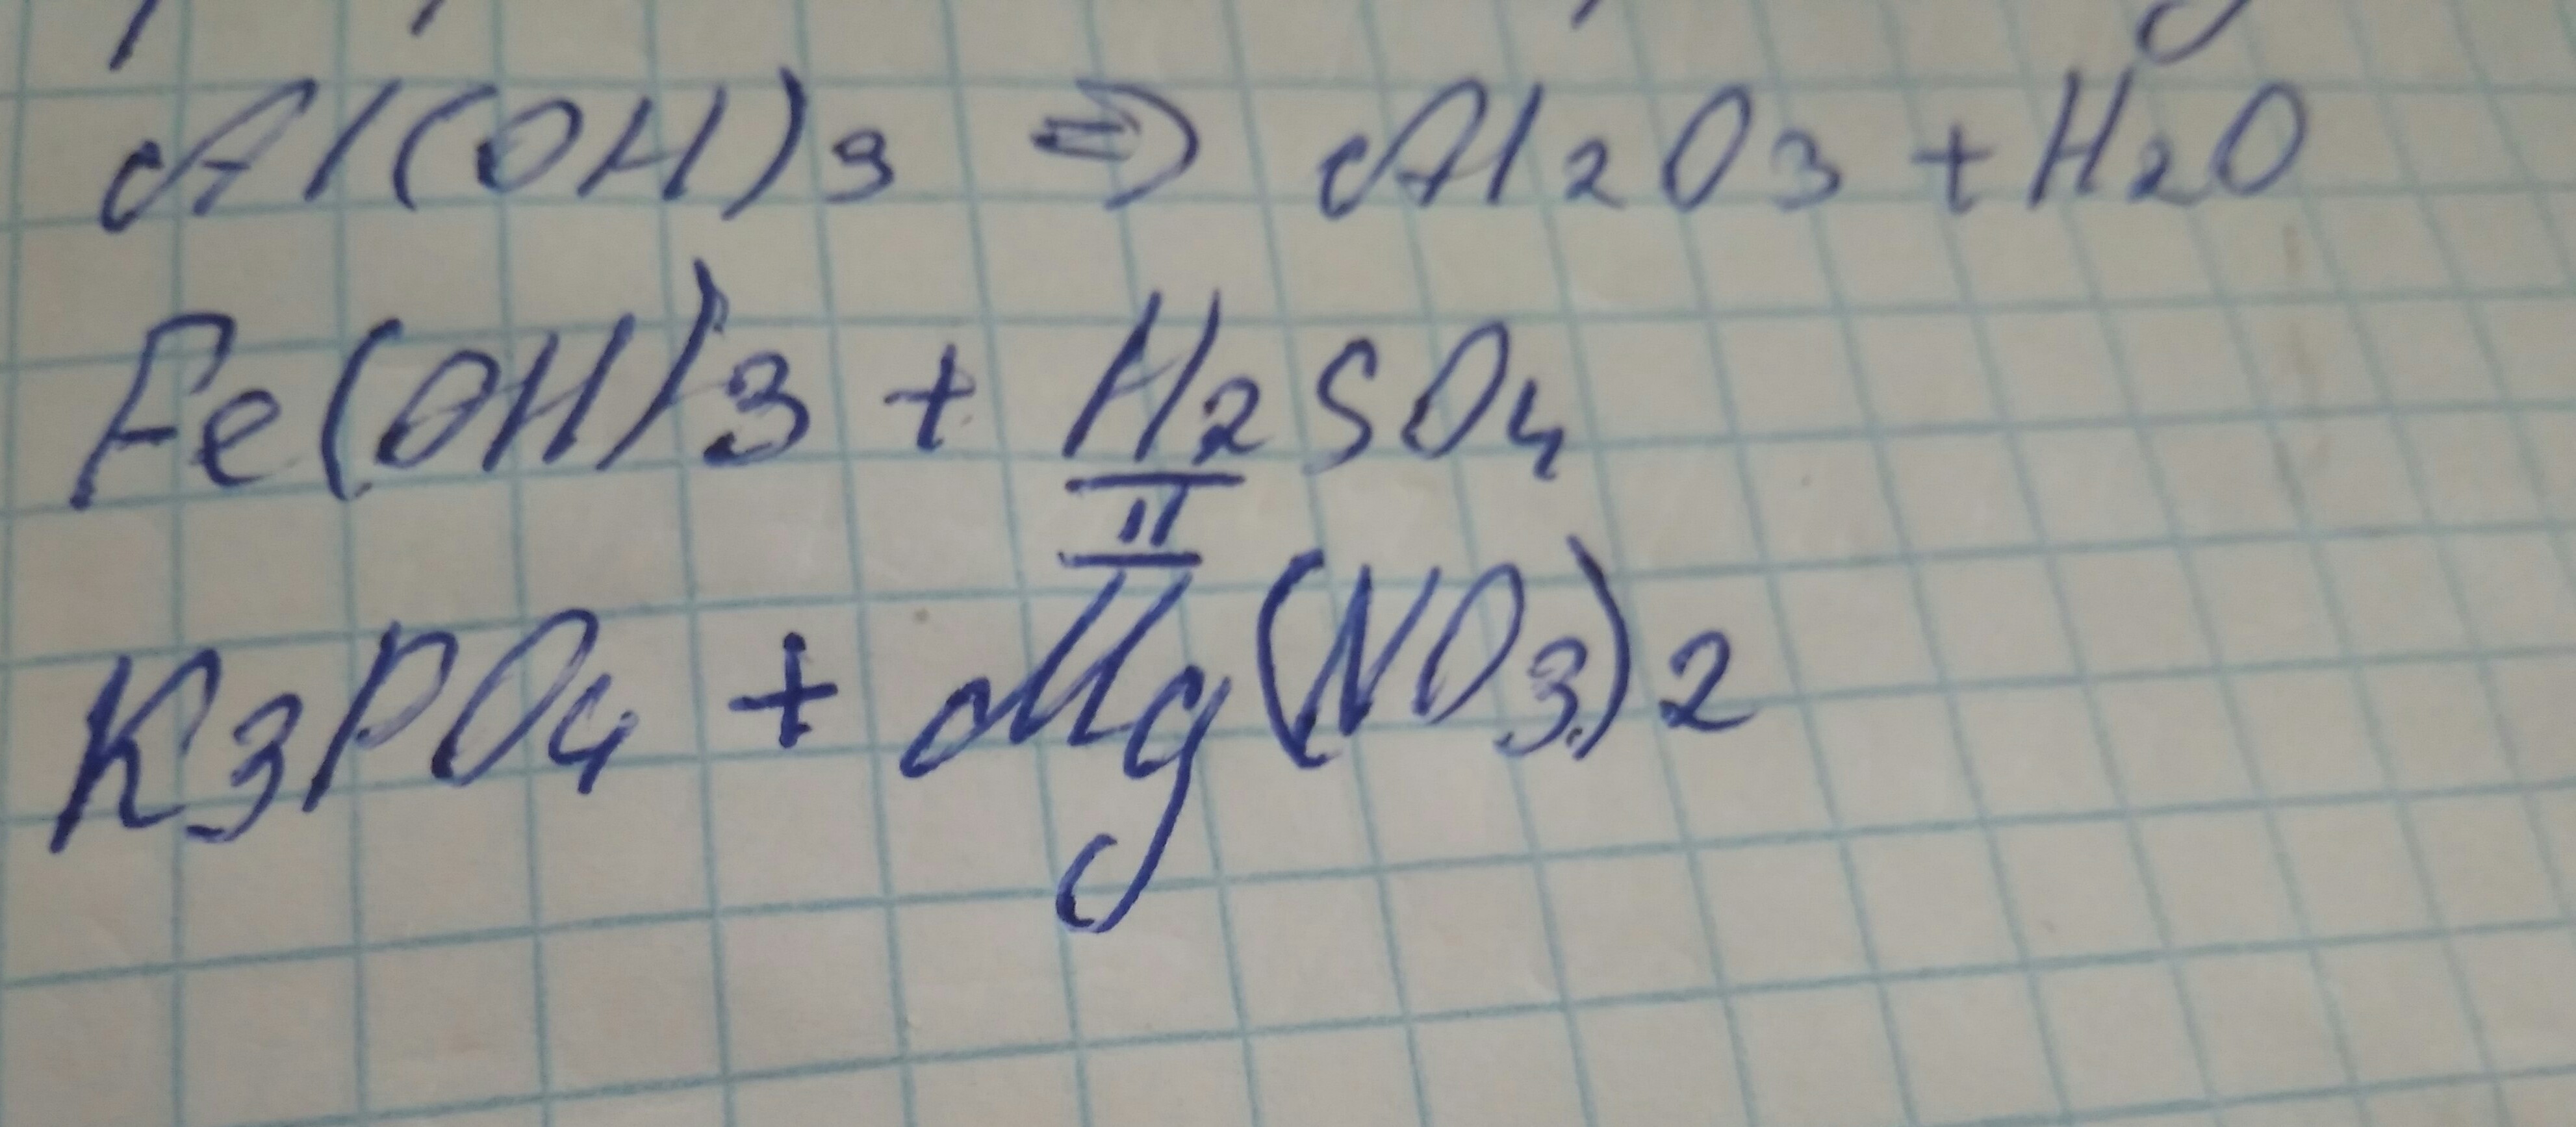 Al(OH)3 ⇒ Al2O3 + H2O
Fe(OH)3 + H2SO4
II
K3PO4 + Mg(NO3)2